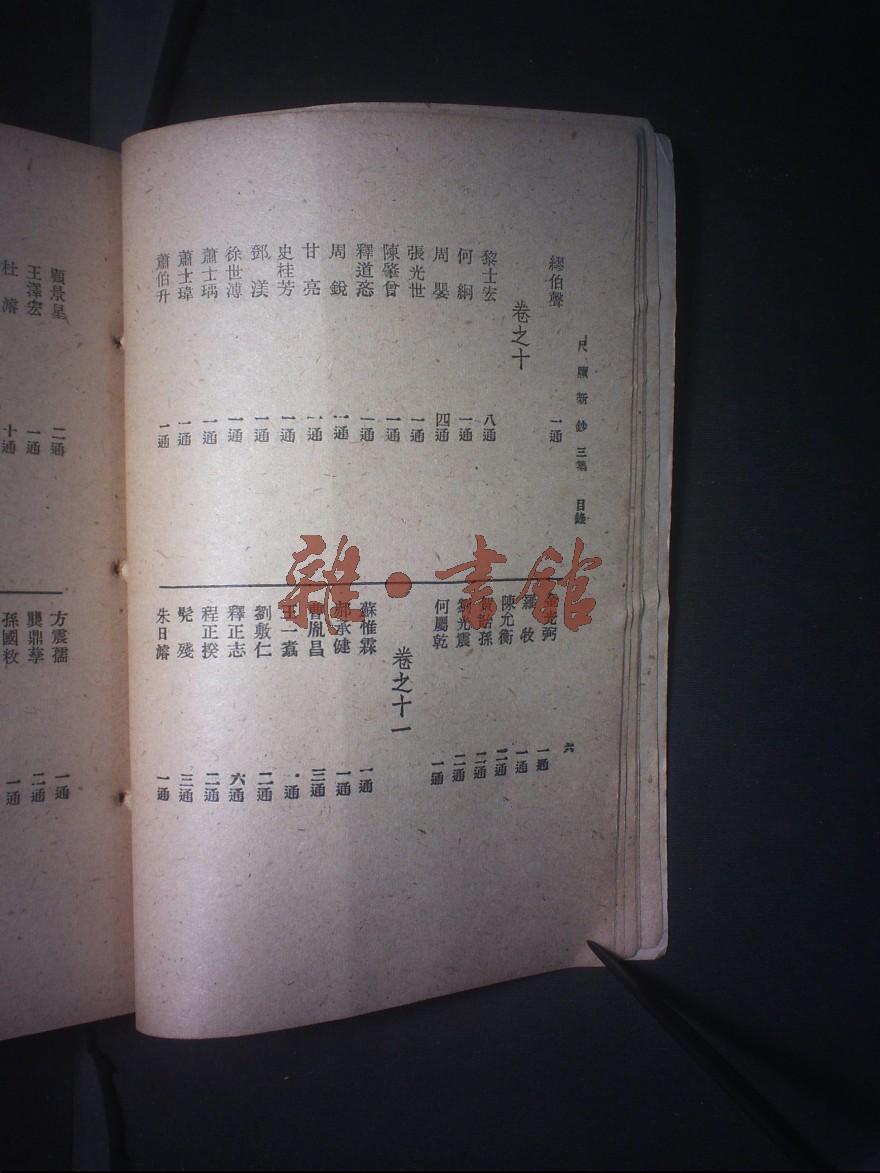 尺牘新鈔三集 目錄 六
繆伯聲 一通
卷之十
黎士宏 八通
何綱 一通
周嬰 四通
張光世 一通
陳肇曾 一通
釋道忞 一通
周銳 一通
甘亮 一通
史桂芳 一通
鄧渼 一通
徐世溥 一通
蕭士瑀 一通
蕭士瑋 一通
蕭伯升 一通
金光弼 一通
羅牧 一通
陳允衡 二通
貽孫 二通
劉光震 二通
何屬乾 一通
卷之十一
蘇惟霖 一通
郝承健 一通
曹胤昌 三通
王一翥 通
劉敷仁 二通
釋正志 六通
程正揆 二通
髡殘 三通
朱日濬 一通
顧景星 二通
王澤宏 一通
杜濬 十通
方震孺 一通
龔鼎孳 二通
孫國敉 一通
雜·書館